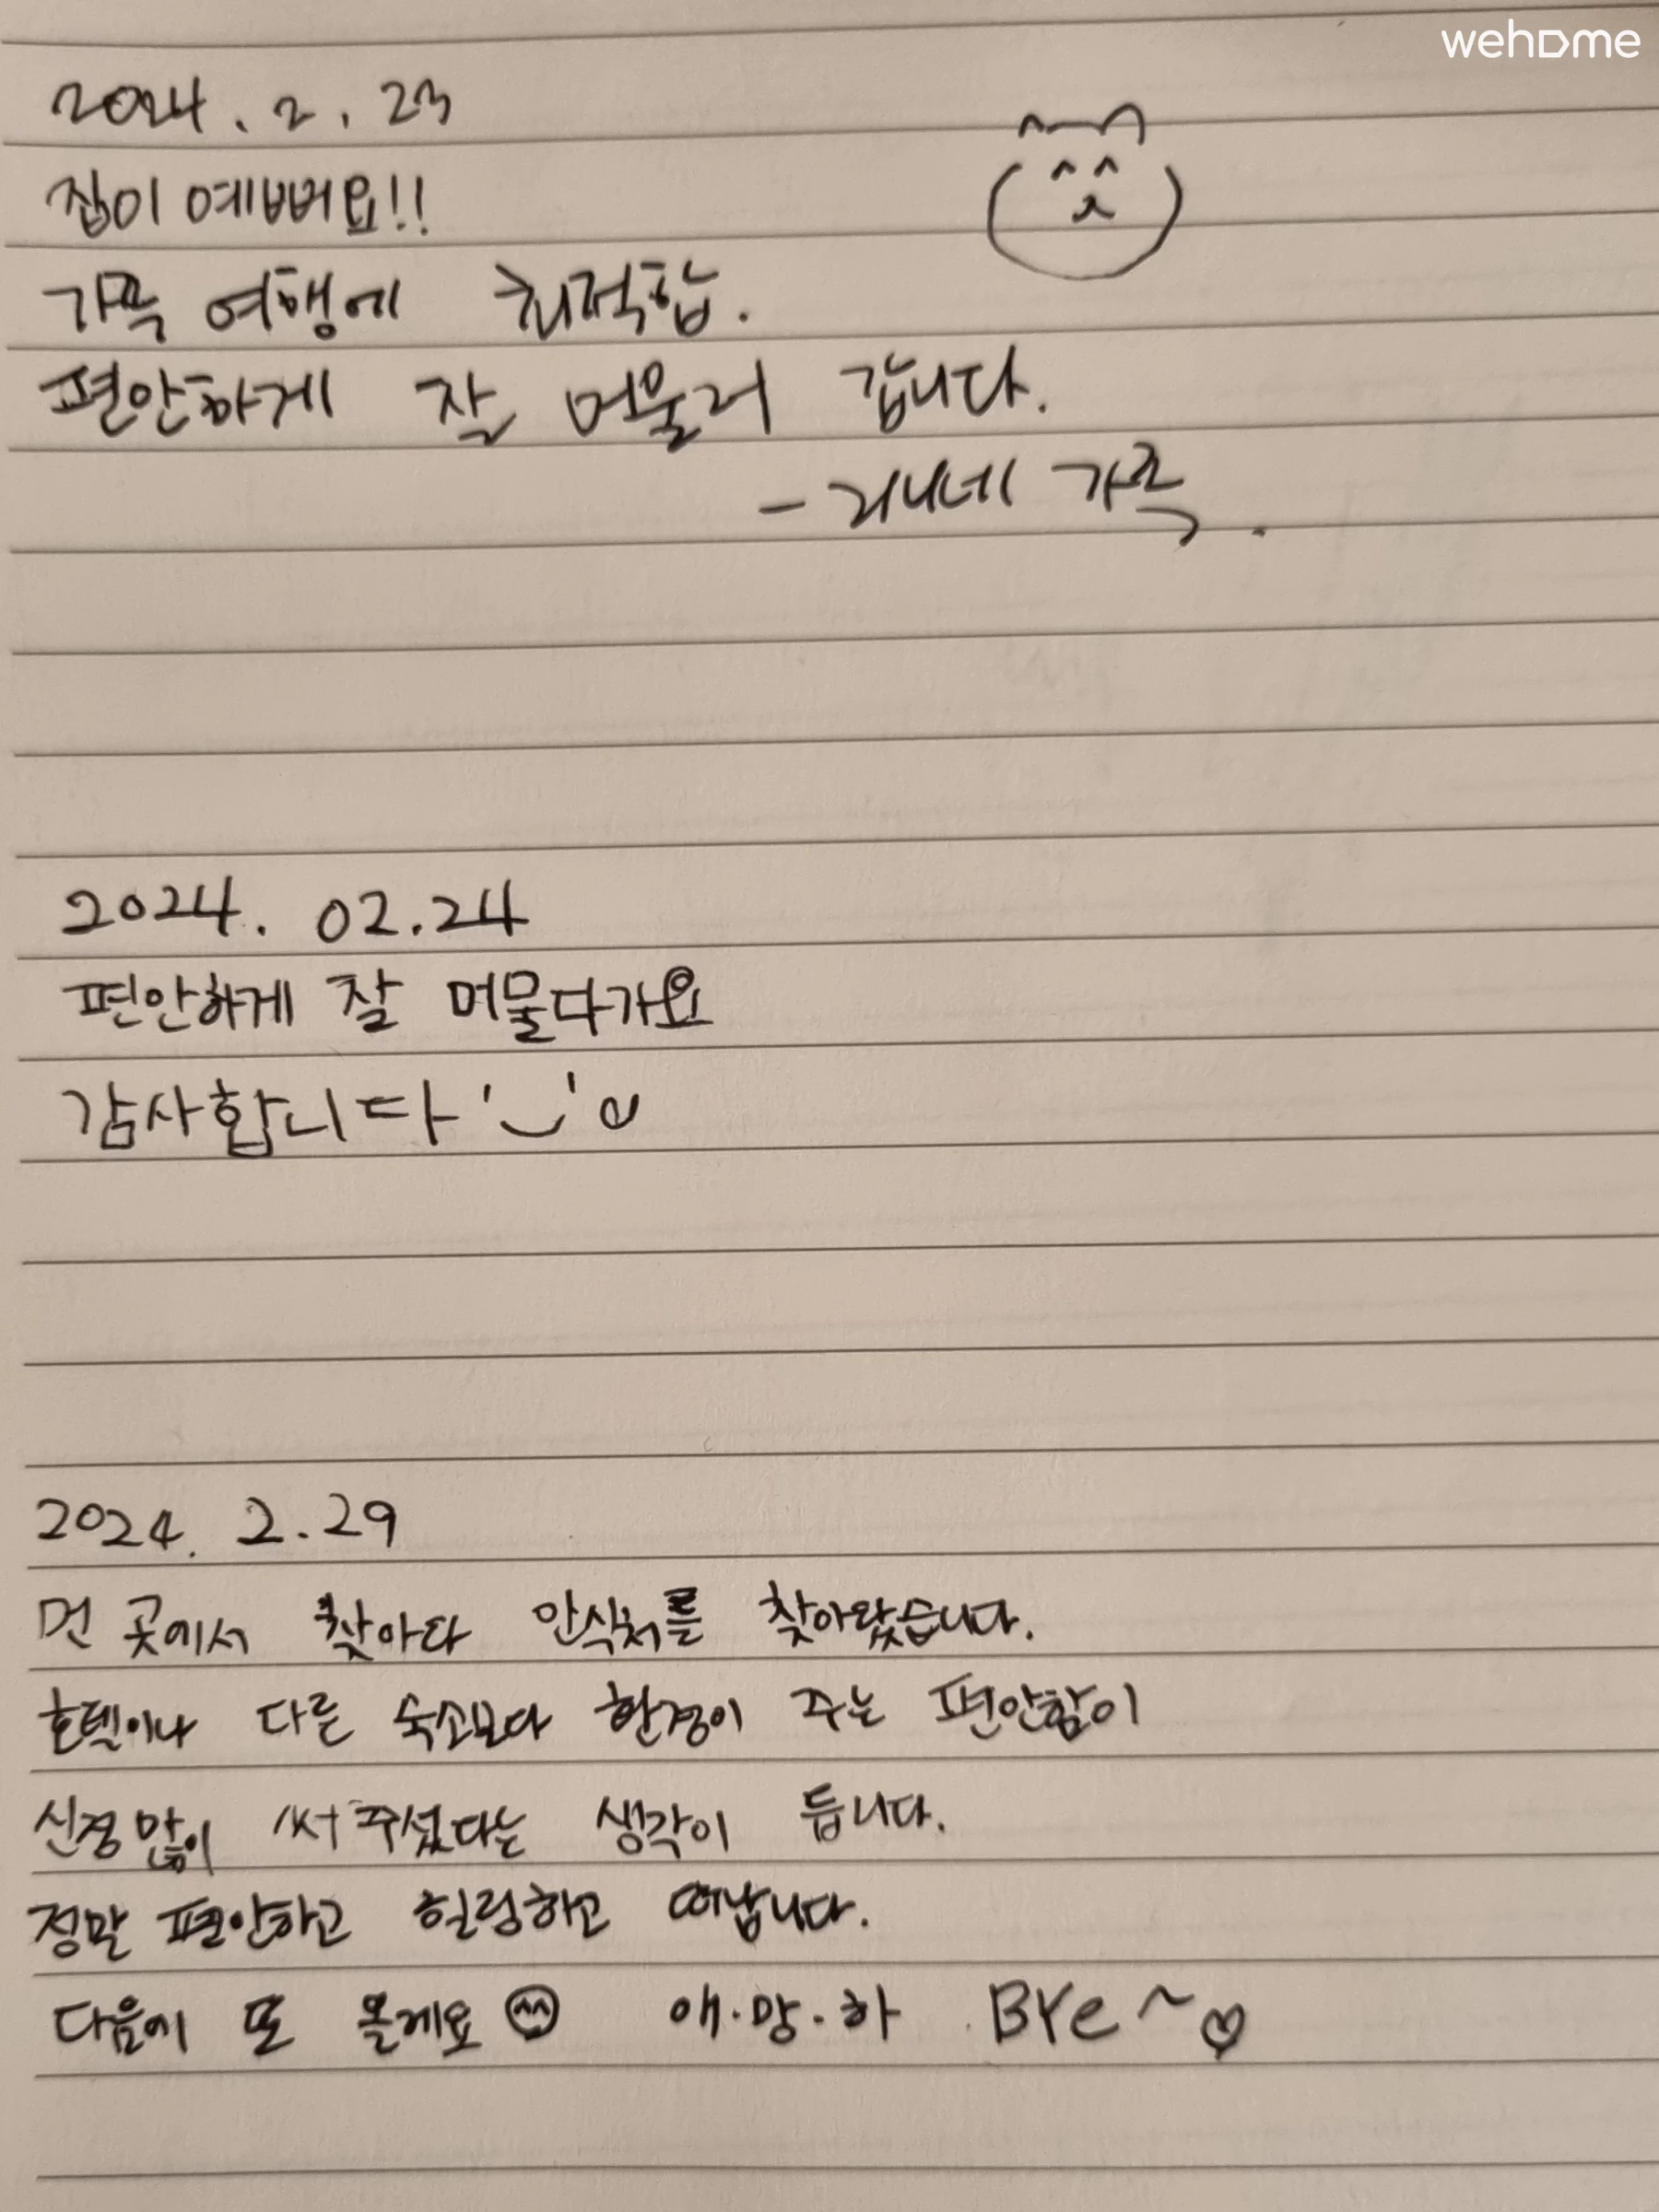 wehome
2024. 2. 23
집이 예뻐요!!
가족 여행에 최적합.
편안하게 잘 머물러 갑니다.
- 리니네 가족.
2024. 02.24
편안하게 잘 머물다가요
감사합니다
2024. 2.29
먼 곳에서 찾아다 안식처를 찾아왔습니다.
호텔이나 다른 숙소보다 환경이 주는 편안함이
신경 많이 써 주셨다는 생각이 듭니다.
정말 편안하고 힐링하고 떠납니다.
다음에 또 올게요 애.망.하 BYe~♡